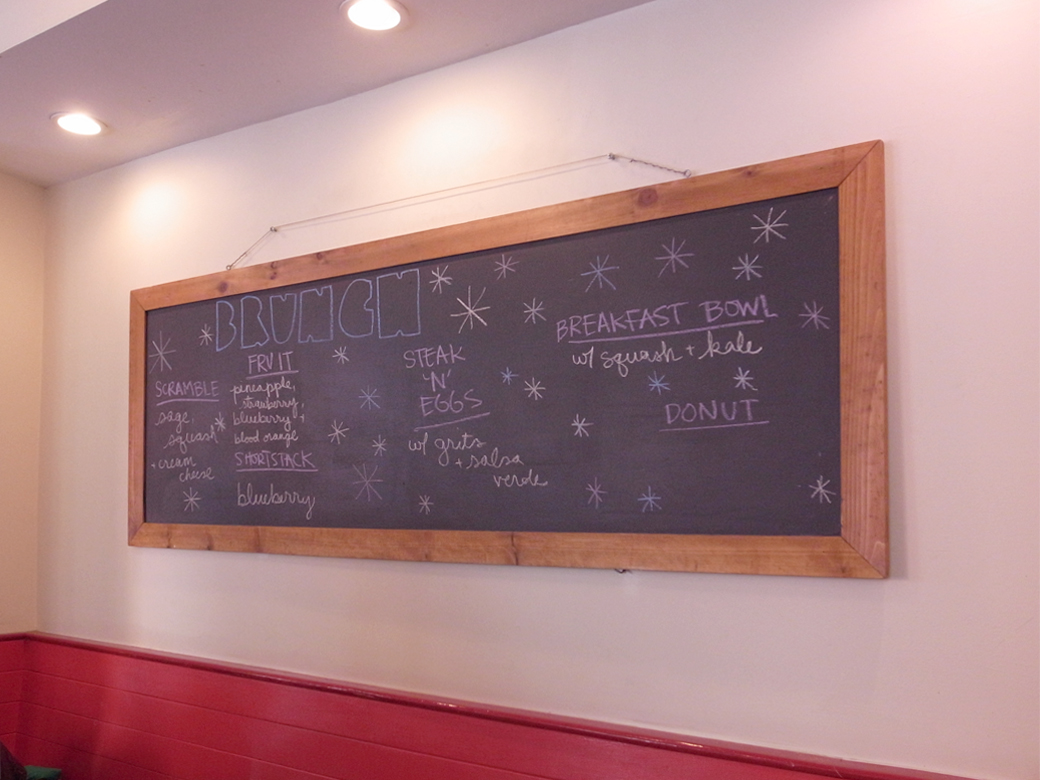 BRUNCH
SCRAMBLE
sage,
squash
+ cream
cheese
FRUIT
pineapple,
strawberry,
blueberry +
blood orange
SHORTSTACK
blueberry
STEAK
'N'
EGGS
w/ grits
+ salsa
verde
BREAKFAST BOWL
w/ squash + kale
DONUT